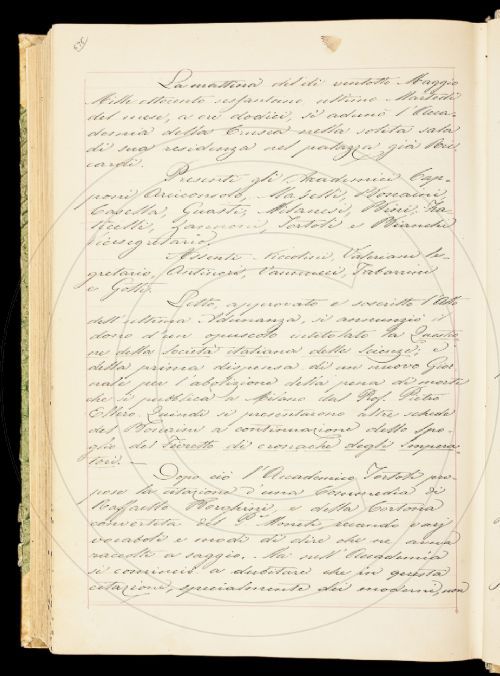 La mattina del dì ventotto Maggio
Mille ottocento sessantuno, ultimo Martedì
del mese, a ore dodici, si adunò l'Acca-
demia della Crusca nella solita sala
di sua residenza nel palazzo già Ric-
cardi.
Presenti gli Accademici Cap-
poni Arciconsolo, Maselli, Bonaini,
Casella, Guasti, Milanesi, Bini, Za-
Zannoni, Tortoli e Bianchi
vicesegretario.
Assenti Niccolini, Valeriani Se-
gretario, Antinori, Vannucci, Tabarrini
e Gotti.
Letto, approvato e soscritto l'Atto
dell'ultima Adunanza, si annunziò il
dono d'un opuscolo intitolato la
della società italiana delle Scienze, e
della prima dispensa di un nuovo Gior-
nale per l'abolizione della pena di morte
che si pubblica a Milano dal Prof. Pietro
Ellero. Quindi si presentarono altre schede
del Bonaini a continuazione dello Spo-
glio del Fioretto di cronache degli Impera-
tori. —
Dopo ciò l'Accademico Tortoli pro-
pose la citazione d'una Commedia di
Raffaello Borghini, e della Cortona
convertita del P. Moneti, recando varj
vocaboli e modi di dire che ne aveva
raccolti a saggio. Ma nell'Accademia
si cominciò a dubitare che in questa
citazione, specialmente dei moderni, non